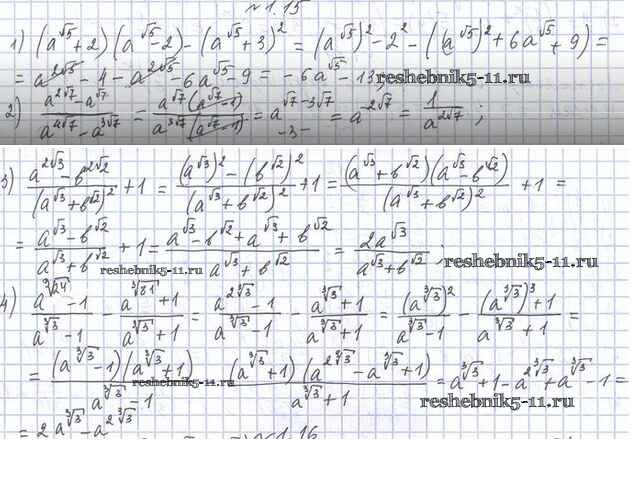 № 1.15
1) (a^√5 + 2)(a^√5 - 2) - (a^√5 + 3)^2 = (a^√5)^2 - 2^2 - ((a^√5)^2 + 6a^√5 + 9) =
= a^2√5 - 4 - a^2√5 - 6a^√5 - 9 = - 6a^√5 - 13;
reshebnik5-11.ru
2) (a^2√7 - a^√7)/(a^4√7 - a^3√7) = (a^√7(a^√7 - 1))/(a^3√7(a^√7 - 1)) = a^√7-3√7 = a^-2√7 = 1/a^2√7 ;
-3-
3) (a^2√3 - b^2√2)/(a^√3 + b^√2)^2 + 1 = ((a^√3)^2 - (b^√2)^2)/(a^√3 + b^√2)^2 + 1 = ((a^√3 + b^√2)(a^√3 - b^√2))/(a^√3 + b^√2)^2 + 1 =
= (a^√3 - b^√2)/(a^√3 + b^√2) + 1 = (a^√3 - b^√2 + a^√3 + b^√2)/(a^√3 + b^√2) = 2a^√3/(a^√3 + b^√2);
reshebnik5-11.ru
reshebnik5-11.ru
4) (a^∛24 - 1)/(a^∛3 - 1) - (a^∛81 + 1)/(a^∛3 + 1) = (a^2∛3 - 1)/(a^∛3 - 1) - (a^∛3 + 1)/(a^∛3 + 1) = (a^∛3)^2/(a^∛3 - 1) - ((a^∛3)^3 + 1)/(a^∛3 + 1) =
= ((a^∛3 - 1)(a^∛3 + 1))/(a^∛3 - 1) ((a^∛3 + 1)(a^2∛3 - a^∛3 + 1))/(a^∛3 + 1) = a^∛3 + 1 - a^2∛3 + a^∛3 - 1 =
reshebnik5-11.ru
reshebnik5-11.ru
= 2a^∛3 - a^2∛3
1.16